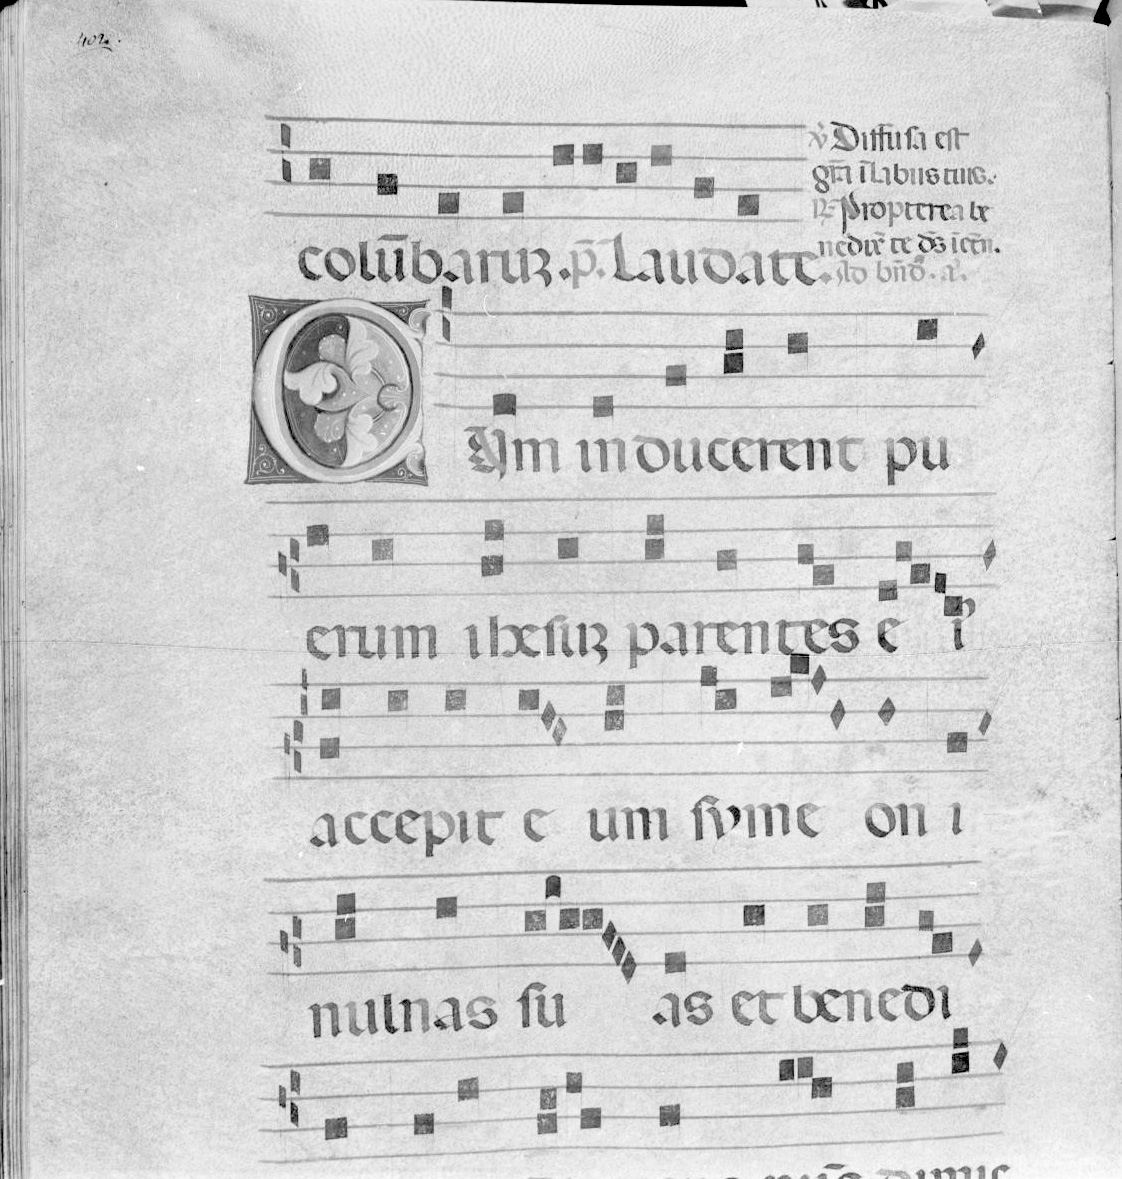 402.
℣ Diffusa est
gr̄a ı̄ labiis tuis.
℟ Propterea be
nedix̄ te d̄s ı̄ et̄n.
colūbarūꝝ. p̄. Laudate. Ad bn̄d. a.
CUm inducerent pu
erum ihesuꝝ parentes e iꝰ
accepit e um syme on i
nulnas su as et benedi